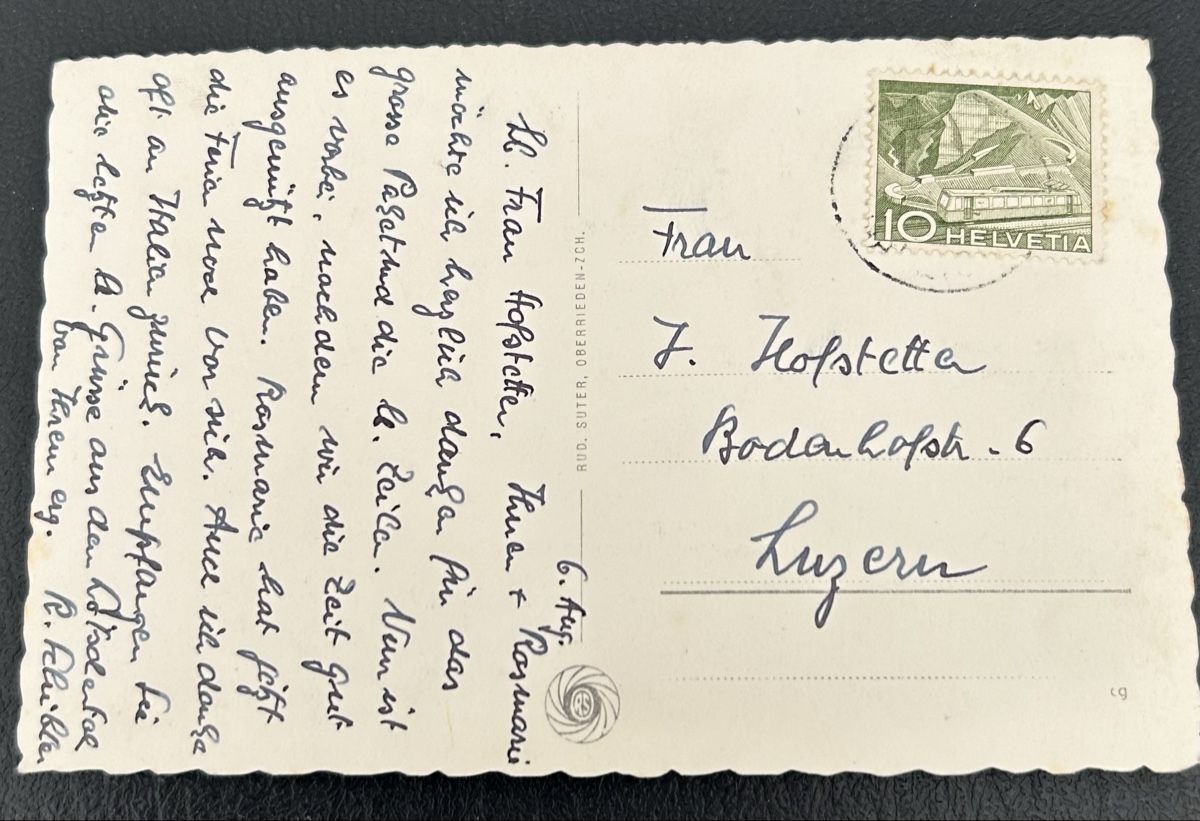 6. Aug.
Lb. Frau Hofstetter, Ihnen + Rosmarie
möchte ich herzlich danken für das
grosse Paket und die lb. Zeilen. Nun ist
es vorbei, nachdem wir die Zeit gut
ausgenützt haben. Rosmarie hat jetzt
die Ferien noch vor sich. Auch ich denke
oft an Italien zurück. Empfangen Sie
die letzten lb. Grüsse aus dem Lötschental
von Ihrem erg. R.
RUD. SUTER, OBERRIEDEN-ZCH.
10 HELVETIA
Frau
J. Hofstetter
Bodenhofstr. 6
Luzern
cg